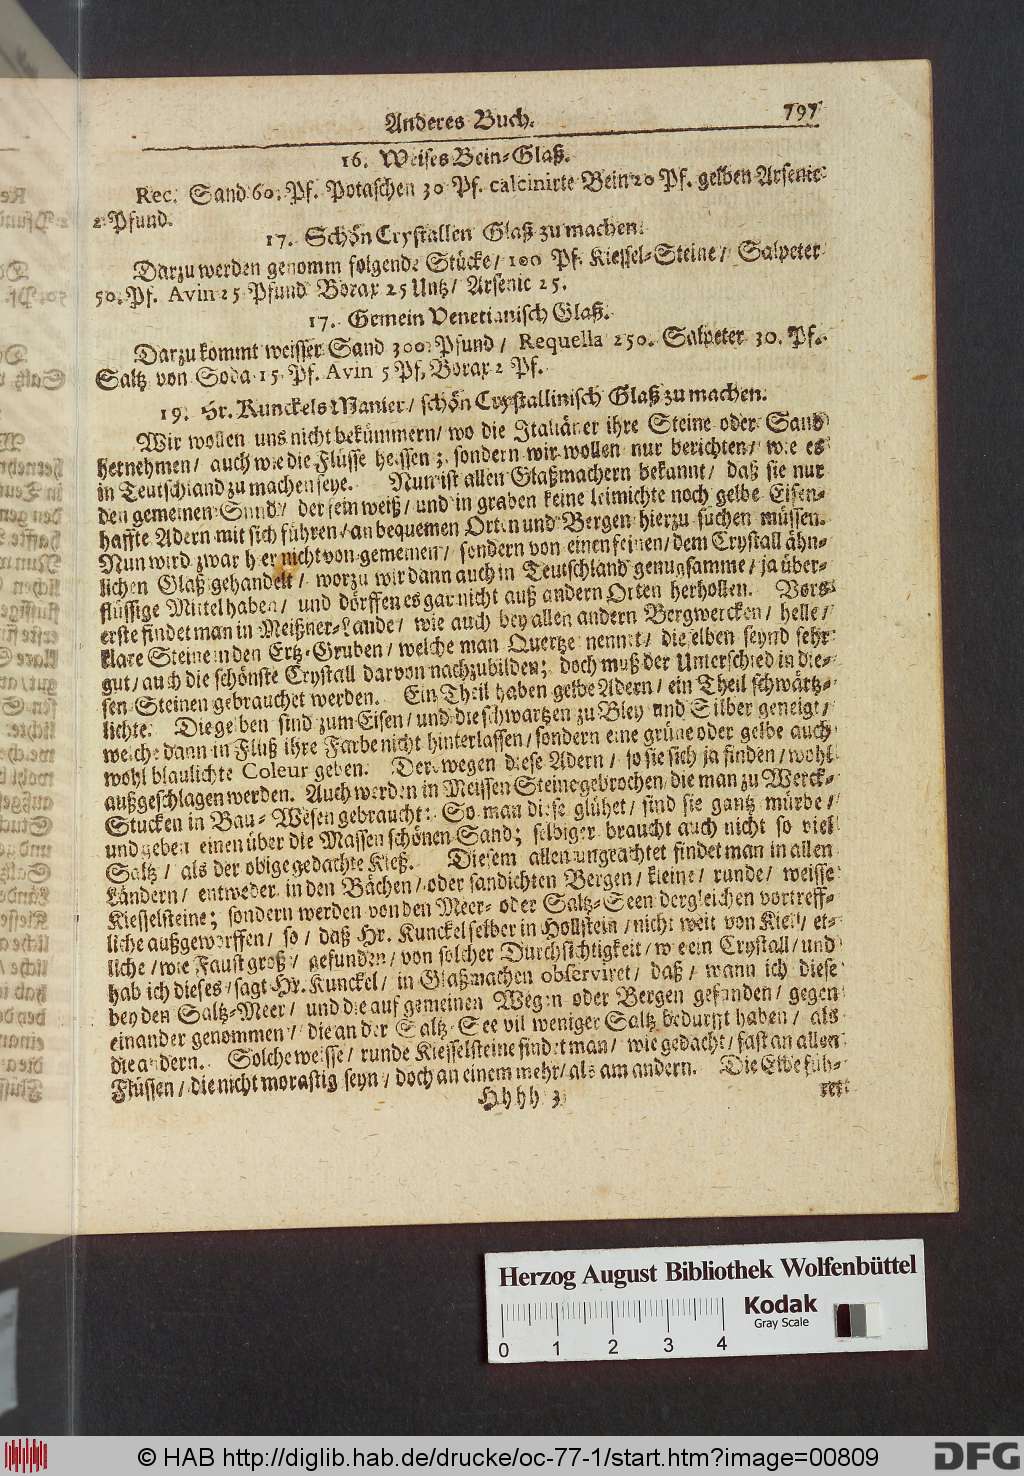 Anderes Buch. 797
16. Weises Bein-Glaß.
Rec. Sand 60. Pf. Potaschen 30 Pf. calcinirte Bein 20 Pf. gelben Arsenic
2 Pfund.
17. Schön Crystallen Glaß zu machen.
Darzu werden genomm folgende Stücke / 100 Pf. Kiessel-Steine / Salpeter
50. Pf. Avin 25 Pfund Borax 25 Untz / Arsenic 25.
17. Gemein Venetianisch Glaß.
Darzu kommt weisser Sand 300. Pfund / Requella 250. Salpeter 30. Pf.
Saltz von Soda 15 Pf. Avin 5 Pf, Borax 2 Pf.
19. Hr. Kunckels Manier / schön Crystallinisch Glaß zu machen.
Wir wollen uns nicht bekümmern / wo die Italiäner ihre Steine oder Sand
hernehmen / auch wie die Flüsse heissen ꝛ. sondern wir wollen nur berichten / wie es
in Teutschland zu machen seye. Nun ist allen Glaßmachern bekannt / daß sie nur
den gemeinen Sand / der fein weiß / und in graben keine leimichte noch gelbe Eisen-
haffte Adern mit sich führen / an bequemen Orten und Bergen hierzu suchen müssen.
Nun wird zwar hier nicht von gemeinen / sondern von einen feinen / dem Crystall ähn-
lichen Glaß gehandelt / worzu wir dann auch in Teutschland genugsamme / ja über-
flüssige Mittel haben / und dörffen es gar nicht auß andern Orten herhollen. Vors
erste findet man in Meißner-Lande / wie auch bey allen andern Bergwercken / helle /
klare Steine in den Ertz-Gruben / welche man Quertze nennet / dieselben seynd sehr
gut / auch die schönste Crystall darvon nachzubilden; doch muß der Unterschied in die-
sen Steinen gebrauchet werden. Ein Theil haben gelbe Adern / ein Theil schwärtz-
lichte. Die gelben sind zum Eisen / und die schwartzen zu Bley und Silber geneigt /
welche dann in Fluß ihre Farbe nicht hinterlassen / sondern eine grüne oder gelbe auch
wohl blaulichte Coleur geben. Derowegen diese Adern / so sie sich ja finden / wohl
außgeschlagen werden. Auch werden in Meissen Steine gebrochen / die man zu Werck-
Stucken in Bau-Wesen gebraucht: So man diese glühet / sind sie gantz mürbe /
und geben einen über die Massen schönen Sand; selbiger braucht auch nicht so viel
Saltz / als der obige gedachte Kieß. Diesem allen ungeachtet findet man in allen
Ländern / entweder in den Bächen / oder sandichten Bergen / kleine / runde / weisse
Kiesselsteine; sondern werden von den Meer- oder Saltz-Seen dergleichen vortreff-
liche außgeworffen / so / daß Hr. Kunckel selber in Hollstein / nicht weit von Kiell / et-
liche / wie Faust groß / gefunden / von solcher Durchsichtigkeit / wie ein Crystall / und
hab ich dieses / sagt Hr. Kunckel / in Glaßmachen observiret / daß / wann ich diese
bey den Saltz-Meer / und die auf gemeinen Wegen oder Bergen gefunden / gegen
einander genommen / die an der Saltz-See vil weniger Saltz bedurfft haben / als
die andern. Solche weisse / runde Kiesselsteine findet man / wie gedacht / fast an allen
Flüssen / die nicht morastig seyn / doch an einem mehr / als am andern. Die Elbe füh-
Hhhh 3 ret
Herzog August Bibliothek Wolfenbüttel
Kodak
Gray Scale
0 1 2 3 4
© HAB http://diglib.hab.de/drucke/oc-77-1/start.htm?image=00809
DFG